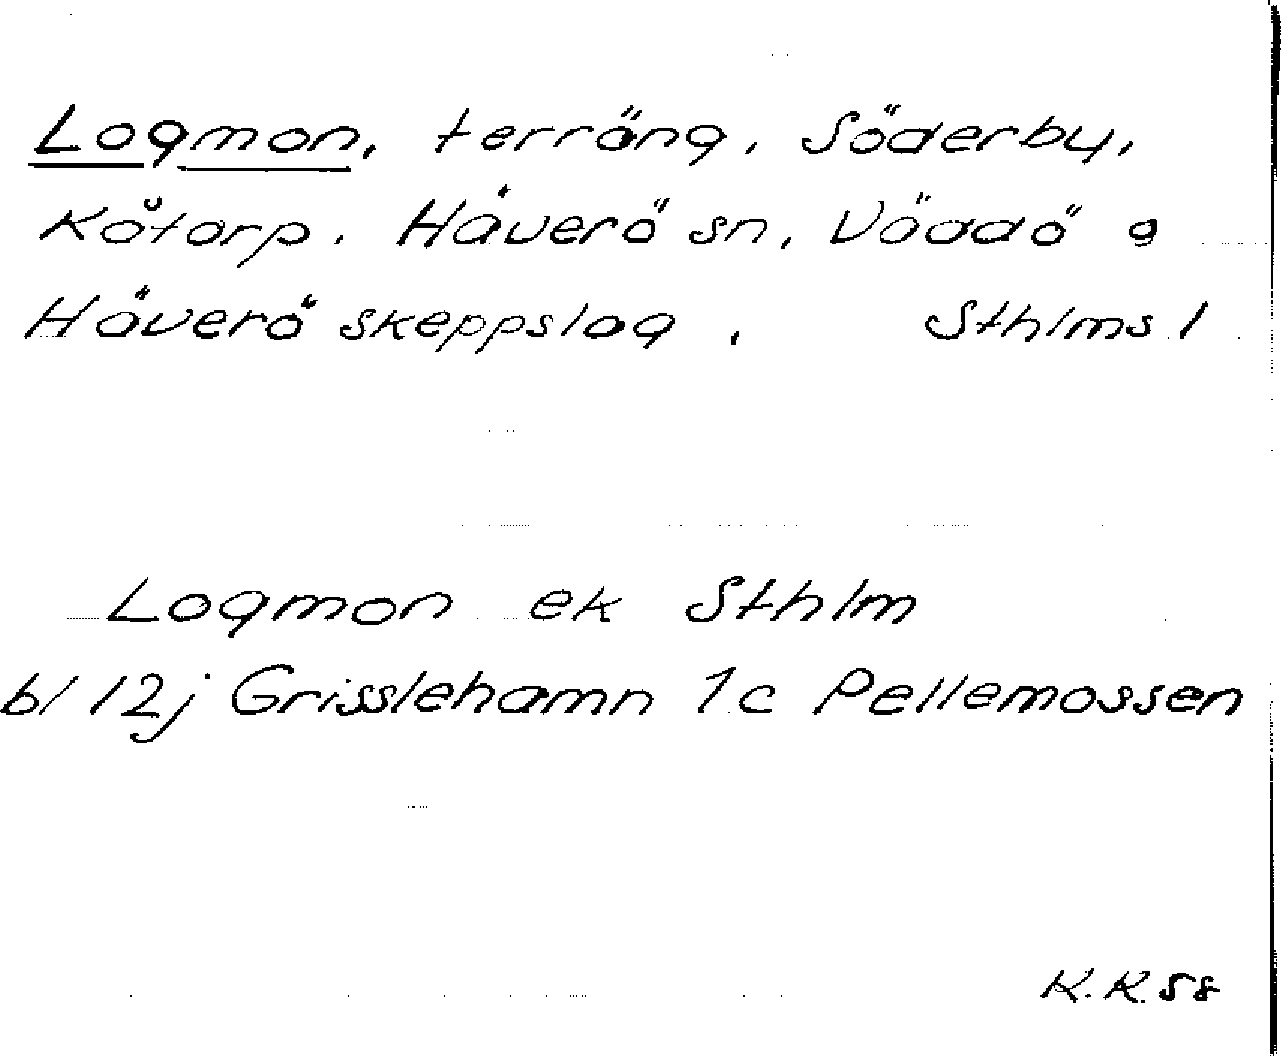 Logmon, terräng, Söderby,
Kåtorp, Häverö sn, Väddö o
Häverö skeppslag, Sthlms l
Logmon ek Sthlm
bl 12j Grisslehamn 1c Pellemossen
K.K. 58